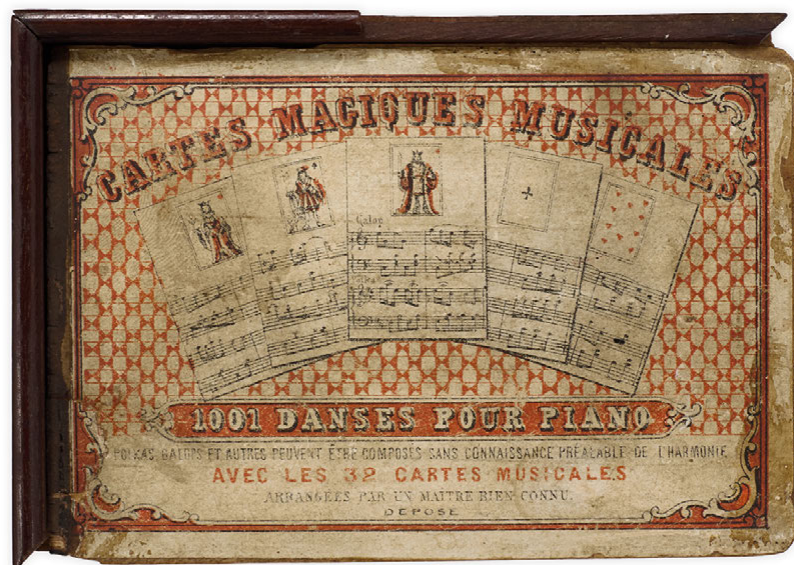 CARTES MAGIQUES MUSICALES
Galop
1001 DANSES POUR PIANO
POLKAS, GALOPS ET AUTRES PEUVENT ÊTRE COMPOSES SANS CONNAISSANCE PRÉALABLE DE L'HARMONIE
AVEC LES 32 CARTES MUSICALES
ARRANGÉES PAR UN MAITRE BIEN CONNU.
DÉPOSÉ